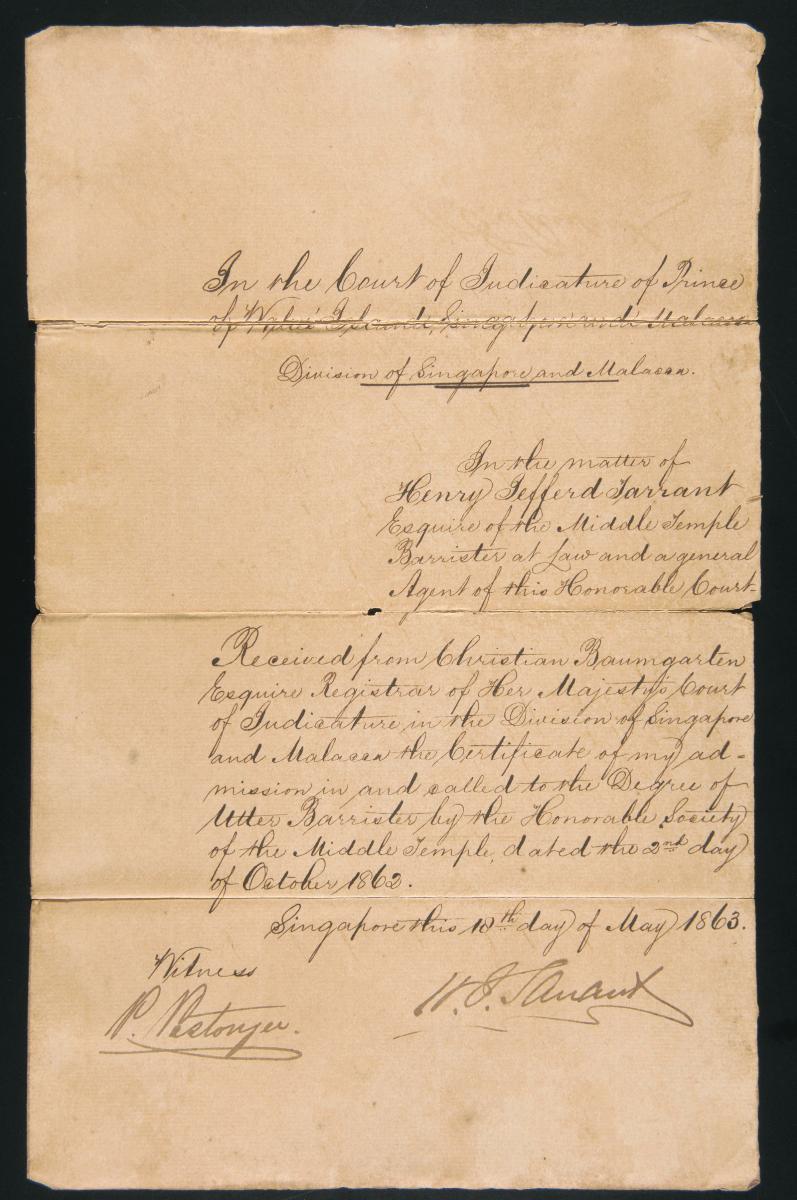 In the Court of Judicature of Prince
of Wales' Island, Singapore and Malacca
Division of Singapore and Malacca.
In the matter of
Henry Jefferd Tarrant
Esquire of the Middle Temple
Barrister at Law and a general
Agent of this Honorable Court-
Received from Christian Baumgarten
Esquire Registrar of Her Majesty's Court
of Judicature in the Division of Singapore
and Malacca the Certificate of my ad-
mission in and called to the Degree of
Utter Barrister by the Honorable Society
of the Middle Temple, dated the 2nd day
of October 1862.
Singapore this 18th day of May 1863.
Witness
P. Pestonjee.
H. J. Tarrant